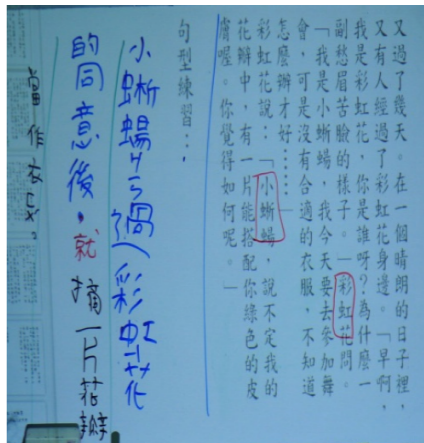 又過了幾天。在一個晴朗的日子裡，
又有人經過了彩虹花身邊。「早啊，
我是彩虹花，你是誰呀？為什麼一
副愁眉苦臉的樣子。」彩虹花問。
「我是小蜥蜴，我今天要去參加舞
會，可是沒有合適的衣服，不知道
怎麼辦才好……」
彩虹花說：「小蜥蜴，說不定我的
花瓣中，有一片能搭配你綠色的皮
膚喔。你覺得如何呢。」
句型練習：
小蜥蜴ㄐㄧㄥ過彩虹花
的同意後，就摘一片花瓣
當作衣ㄈㄨˊ。